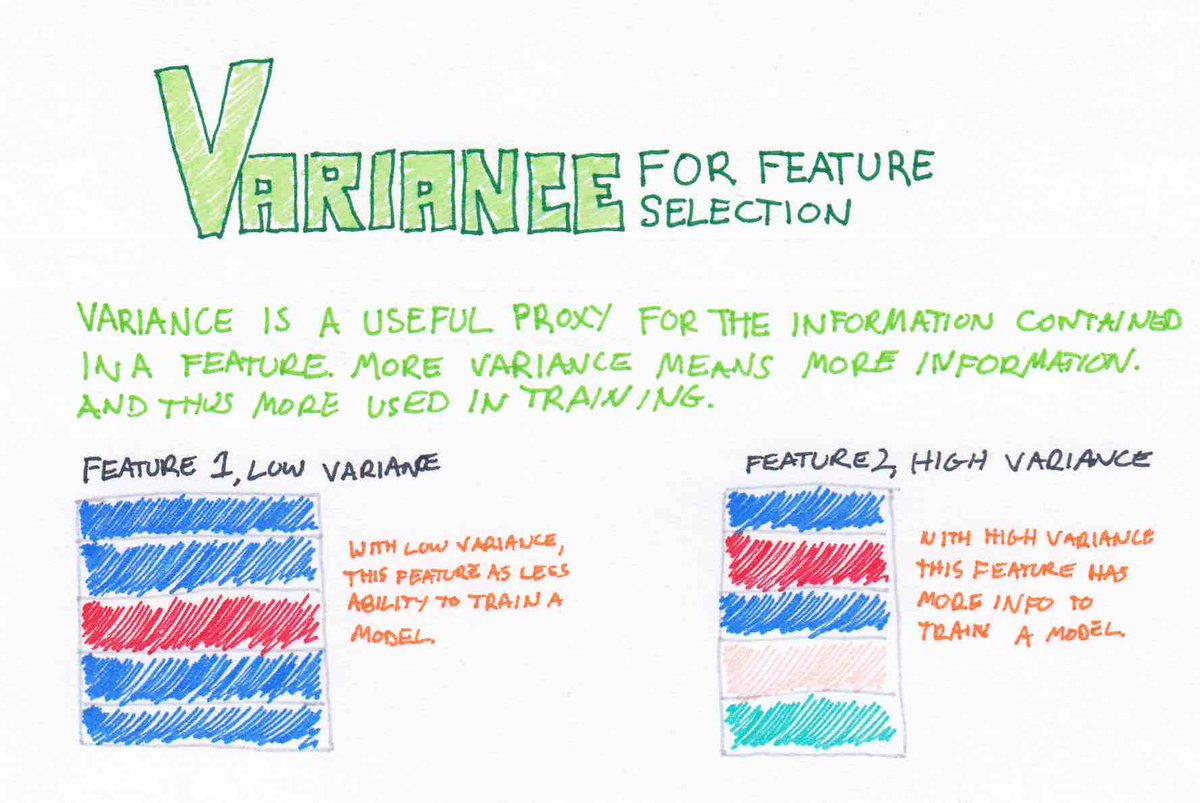 VARIANCE FOR FEATURE
SELECTION
VARIANCE IS A USEFUL PROXY FOR THE INFORMATION CONTAINED
IN A FEATURE. MORE VARIANCE MEANS MORE INFORMATION.
AND THUS MORE USED IN TRAINING.
FEATURE 1, LOW VARIANE
WITH LOW VARIANCE,
THIS FEATURE AS LESS
ABILITY TO TRAIN A
MODEL.
FEATURE 2, HIGH VARIANCE
WITH HIGH VARIANCE
THIS FEATURE HAS
MORE INFO TO
TRAIN A MODEL.